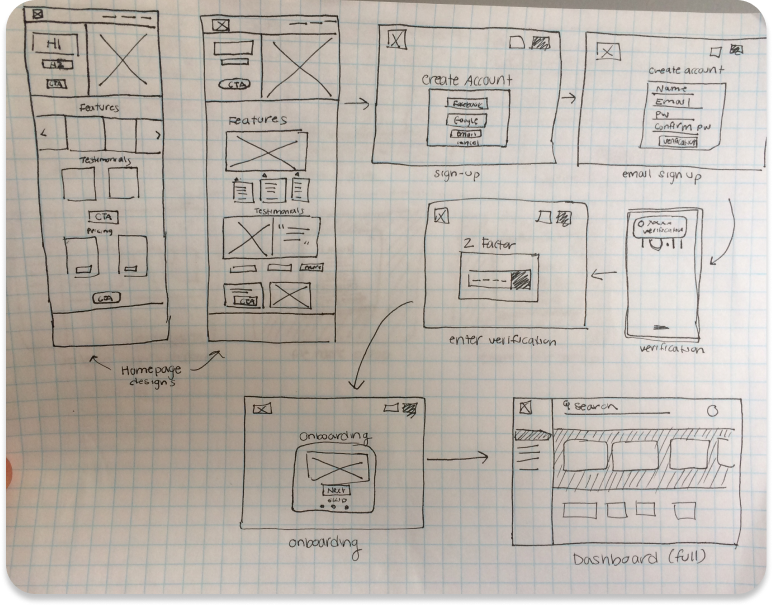 Hi
CTA
Features
Testimonials
CTA
Pricing
CTA
CTA
Features
Testimonials
CTA
Homepage
designs
Create Account
Facebook
Google
Email
sign-up
Create account
Name
Email
PW
Confirm PW
verification
email sign up
verification
verification
2 Factor
enter verification
Onboarding
Next
skip
onboarding
Search
Dashboard (full)